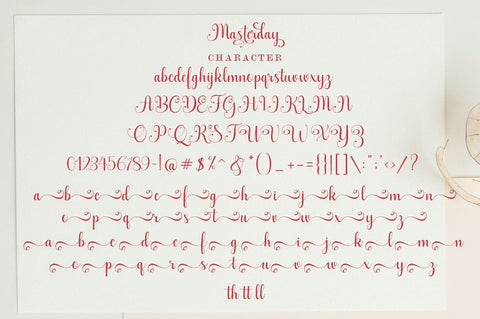 Masterday
CHARACTER
abcdefghijklmnopqrstuvwxyz
ABCDEFGHIJKLMN
OPQRSTUVWXYZ
0123456789~!@#$%^&*()_+-={}|[]\:";'<>/?
a b c d e f g h i j k l m n
o p q r s t u v w x y z
a b c d e f g h i j k l m n
o p q r s t u v w x y z
th tt ll